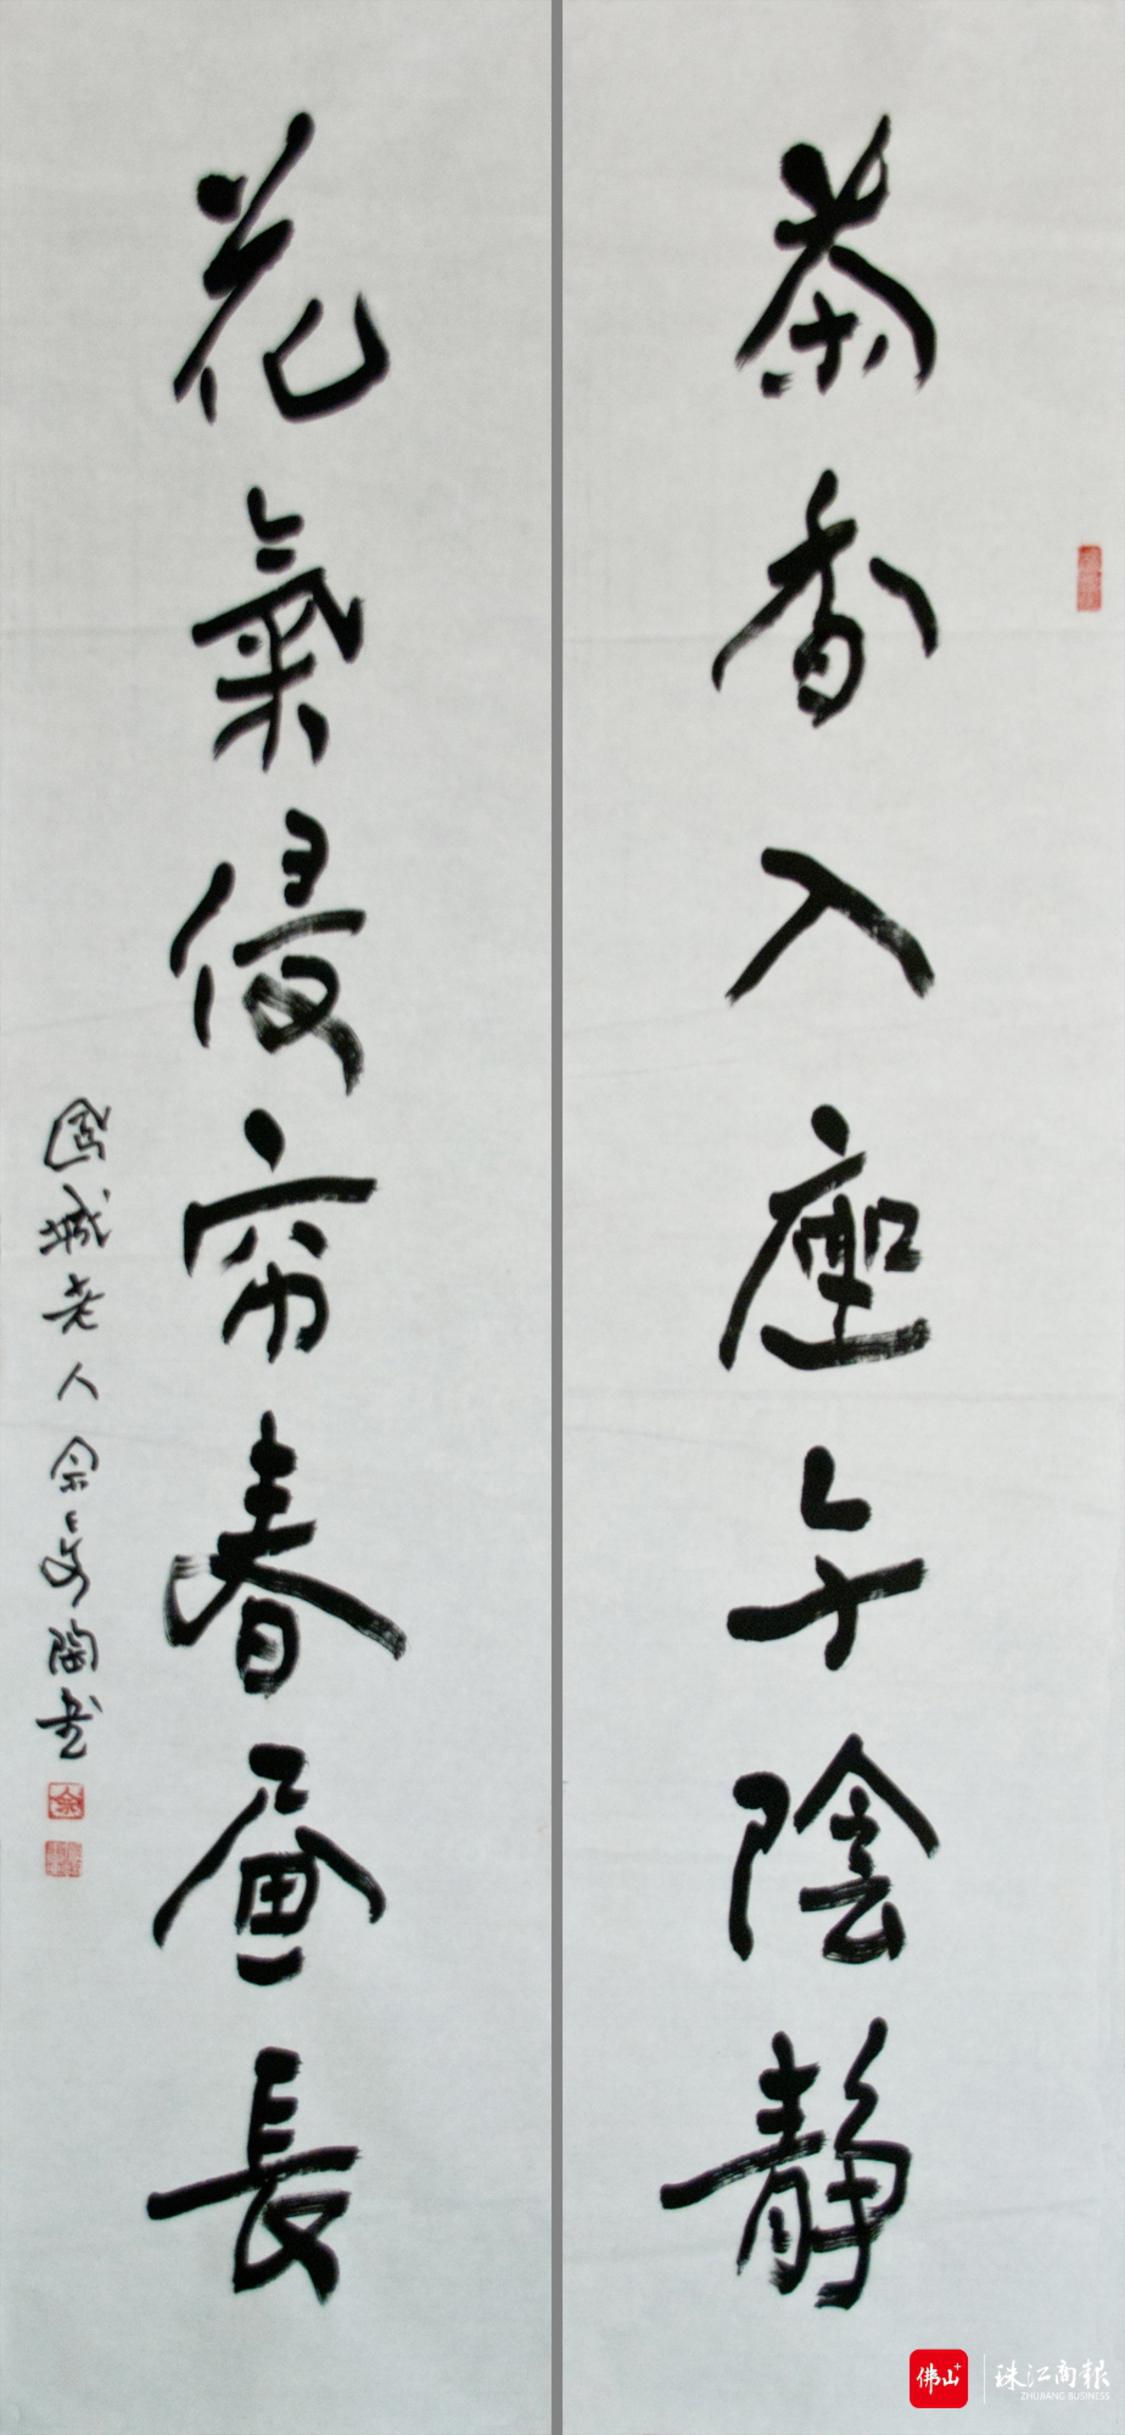 茶香入座午陰静
花氣侵帘春晝長
老人佘
陶书
佛山+
珠江商報
ZHUJIANG BUSINESS